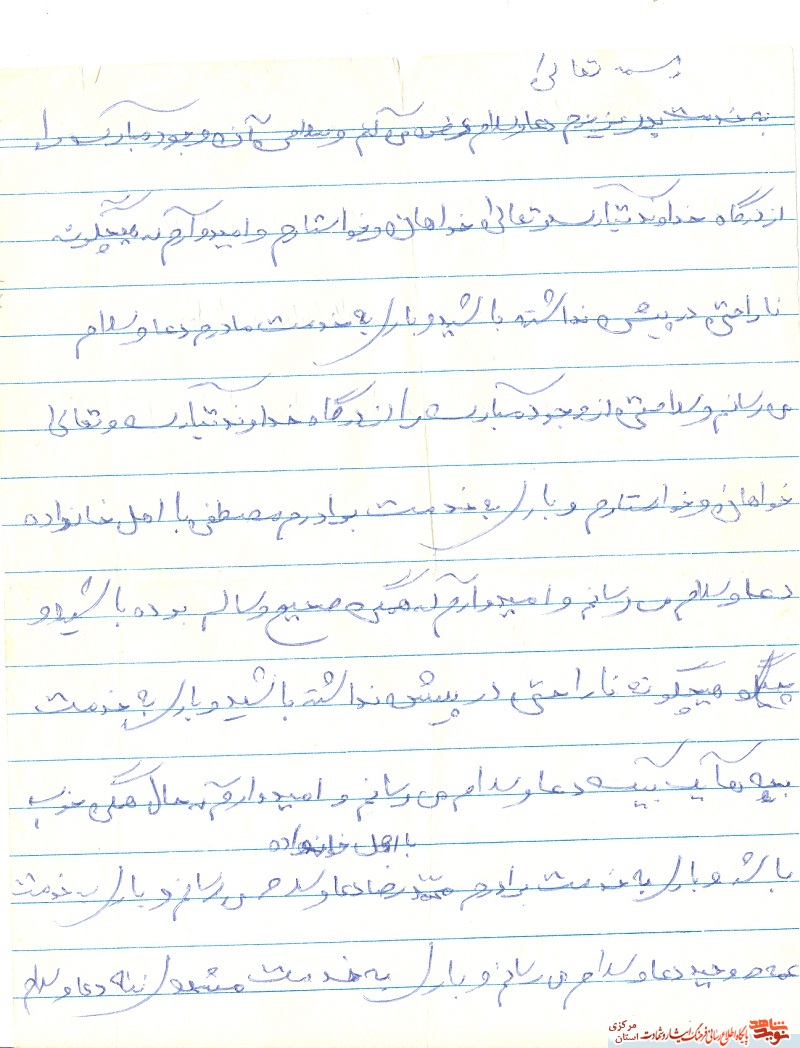 بسمه تعالی
به خدمت پدر عزیزم دعا و سلام عرض می کنم و سلامتی آن وجود مبارک را
از درگاه خداوند تبارک و تعالی خواهان و خواستارم و امیدوارم که هیچگونه
ناراحتی در پیش نداشته باشید و باری به خدمت مادرم دعا و سلام
می رسانم و سلامتی از وجود مبارک را از درگاه خداوند تبارک و تعالی
خواهان و خواستارم و باری به خدمت برادرم مصطفی با اهل خانواده
دعا و سلام می رسانم و امیدوارم که همگی صحیح و سالم بوده باشید و
هیچگونه ناراحتی در پیش نداشته باشید و باری به خدمت
بچه هایت دعا و سلام می رسانم و امیدوارم که حال همگی خوب
با اهل خانواده
باشد و باری به خدمت برادرم محمدرضا دعا و سلام می رسانم و باری به خدمت
عمه دعا و سلام می رسانم و باری به خدمت ننه دعا و سلام
نوید شاهد
پایگاه اطلاع رسانی فرهنگ ایثار و شهادت
استان مرکزی